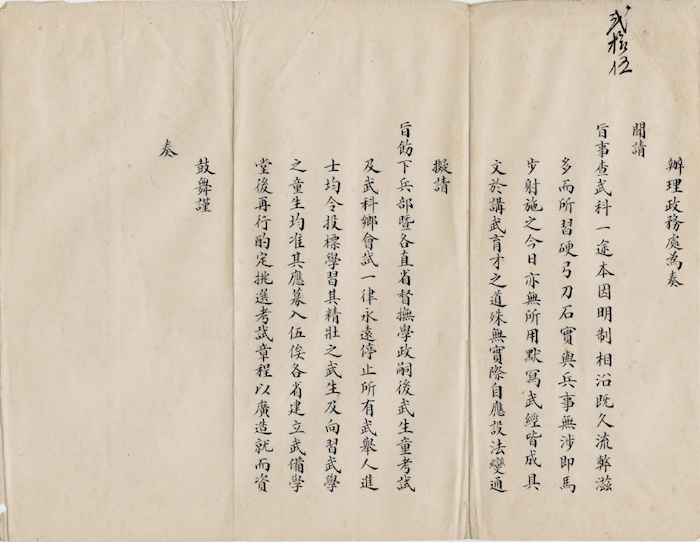 貳拾伍
辦理政務處為奏
聞請
旨事查武科一途本因明制相沿既久流弊滋
多而所習硬弓刀石實與兵事無涉即馬
步射施之今日亦無所用默寫武經皆成具
文於講武育才之道殊無實際自應設法變通
擬請
旨飭下兵部暨各直省督撫學政嗣後武生童考試
及武科鄉會試一律永遠停止所有武舉人進
士均令投標學習其精壯之武生及向習武學
之童生均准其應募入伍俟各省建立武備學
堂後再行酌定挑選考試章程以廣造就而資
鼓舞謹
奏